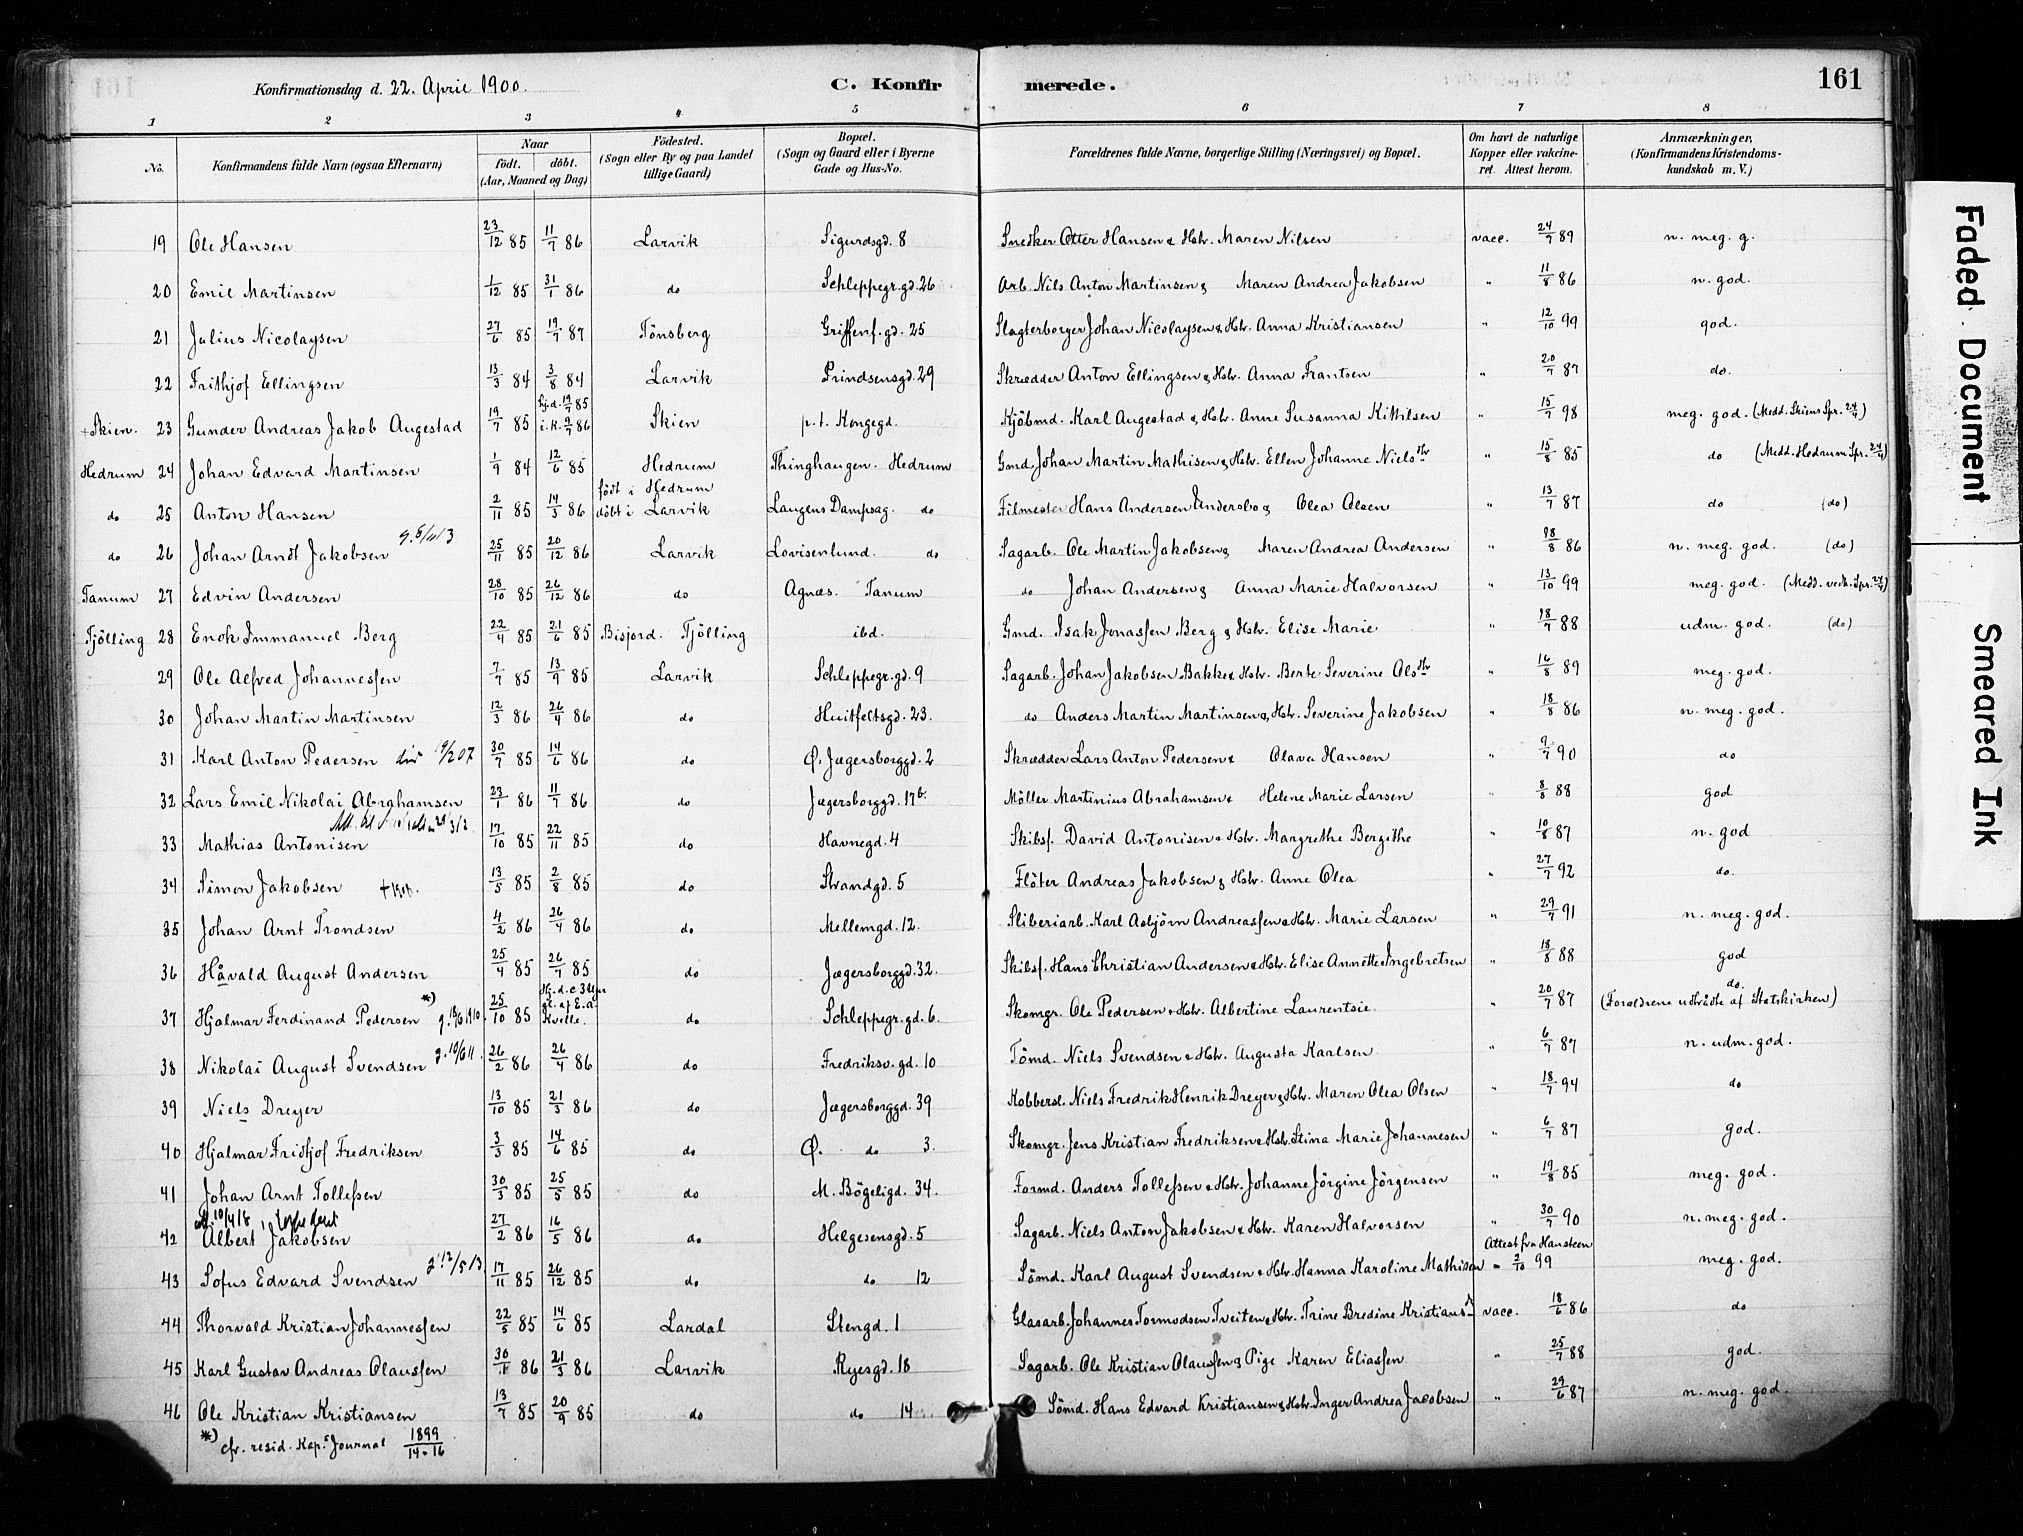 Konfirmationsdag d. 22. April 1900. C. Konfir merede. 161
1 2 3 4 5 6 7 8
No. Konfirmandens fulde Navn (ogsaa Efternavn) Naar født. døbt. (Aar, Maaned og Dag) Födested. (Sogn eller By og paa Landet tillige Gaard) Bopæl. (Sogn og Gaard eller i Byerne Gade og Hus-No. Forældrenes fulde Navne, borgerlige Stilling (Næringsvei) og Bopæl. Om havt de naturlige Kopper eller vakcineret. Attest herom. Anmærkninger, (Konfirmandens Kristendomskundskab m. V.)
19 Ole Hansen 23/12 85 11/7 86 Larvik Sigurdsgd. 8 Snedker Otter Hansen & Hstr. Maren Nilsen vacc. 24/7 89 n. meg. g.
20 Emil Martinsen 1/12 85 31/1 86 do Schleppegr.gd. 26 Arb. Nils Anton Martinsen & Maren Andrea Jakobsen " 11/8 86 n. god.
21 Julius Nicolaysen 27/6 85 19/7 87 Tönsberg Griffenf.gd. 25 Slagterborger Johan Nicolaysen & Hstr. Anna Kristiansen " 12/10 99 god.
22 Frithjof Ellingsen 13/3 84 3/8 84 Larvik Prindsensgd. 29 Skrædder Anton Ellingsen & Hstr. Anna Frantsen " 20/7 87 do.
Skien. 23 Gunder Andreas Jakob Augestad 19/7 85 hj.d. 19/7 85 i.K. 9/7 86 Skien p.t. Kongegd. Kjöbmd. Karl Augestad & Hstr. Anne Susanna Kittilsen " 15/7 98 meg. god. (Medd. Skiens Spr. 24/4)
Hedrum 24 Johan Edvard Martinsen 1/9 84 12/6 85 Hedrum Thinghaugen. Hedrum Gmd. Johan Martin Mathisen & Hstr. Ellen Johanne Nielsdtr " 15/8 85 do (Medd. Hedrum Spr. 24/4)
do 25 Anton Hansen 2/11 85 14/3 86 födt i Hedrum döbt i Larvik Laugens Dampsag. do Filmester Hans Andersen Undersbo & Olea Olsen " 13/7 87 do (do)
do 26 Johan Arndt Jakobsen 25/11 85 20/12 86 Larvik Lovisenlund. do Sagarb. Ole Martin Jakobsen & Maren Andrea Andersen " 28/8 86 n. meg. god. (do)
Tanum 27 Edvin Andersen 28/10 85 26/12 86 do Agnæs. Tanum do Johan Andersen & Anna Marie Halvorsen " 13/10 99 meg. god. (Medd. vedk. Spr. 24/4)
Tjölling 28 Enok Immanuel Berg 22/4 85 21/6 85 Bisjord. Tjölling ibd. Gmd. Isak Jonassen Berg & Hstr. Elise Marie " 18/7 88 udm. god. (do)
29 Ole Alfred Johannessen 7/7 85 13/9 85 Larvik Schleppegr.gd. 9 Sagarb. Johan Jakobsen Bakke & Hstr. Berte Severine Olsdtr " 16/8 89 meg. god.
30 Johan Martin Martinsen 12/3 86 26/4 86 do Huitfeltsgd. 23. do Anders Martin Martinsen & Hstr. Severine Jakobsen " 18/8 86 n. meg. god.
31 Karl Anton Pedersen 30/7 85 14/6 86 do Ø. Jægersborggd. 2 Skrædder Lars Anton Pedersen & Olava Hansen " 9/7 90 do
32 Lars Emil Nikolai Abrahamsen 23/1 86 11/7 86 do Jægersborggd. 17b. Möller Martinius Abrahamsen & Helene Marie Larsen " 8/8 88 god
33 Mathias Antonisen 17/10 85 22/11 85 do Havnegd. 4 Skibsf. David Antonisen & Hstr. Margrethe Bergithe " 10/8 87 n. god
34 Simon Jakobsen 13/5 85 2/8 85 do Strandgd. 5 Flöter Andreas Jakobsen & Hstr. Anne Olea " 27/7 92 do.
35 Johan Arnt Trondsen 4/2 86 26/4 86 do Mellemgd. 12. Sliberiarb. Karl Asbjörn Andreassen & Hstr. Marie Larsen " 29/7 91 n. meg. god.
36 Håvald August Andersen 25/4 85 26/7 85 do Jægersborggd. 32. Skibsf. Hans Christian Andersen & Hstr. Elise Annette Ingebretsen " 18/8 88 god
37 Hjalmar Ferdinand Pedersen *) g. 18/6 1910. 25/10 85 do Schleppegr.gd. 6. Skomgr. Ole Pedersen & Hstr. Albertine Laurentsie " 20/7 87 do. (Forældrene udtrådte af Statskirken)
38 Nikolai August Svendsen 26/2 86 26/4 86 do Fredriksv.gd. 10 Tömd. Niels Svendsen & Hstr. Augusta Karlsen " 6/7 87 n. udm. god.
39 Niels Dreyer 13/10 85 21/3 86 do Jægersborggd. 39 Kobbersl. Niels Fredrik Henrik Dreyer & Hstr. Maren Olea Olsen " 18/7 94 do
40 Hjalmar Fridtjof Fredriksen 3/3 85 14/6 85 do Ø. do 3. Skomgr. Jens Kristian Fredriksen & Hstr. Stina Marie Johannesen " 6/7 87 god.
41 Johan Arnt Tollefsen 30/3 85 25/5 85 do M. Bögeligd. 34. Formd. Anders Tollefsen & Hstr. Johanne Jörgine Jörgensen " 19/8 85 meg. god.
42 Albert Jakobsen 27/2 86 16/5 86 do Helgesensgd. 5 Sagarb. Niels Anton Jakobsen & Hstr. Karen Halvorsen " 30/7 90 n. meg. god.
43 Sofus Edvard Svendsen 17/11 85 26/12 85 do do 12 Sömd. Karl August Svendsen & Hstr. Hanna Karoline Mathisen Attest fra Hansteen " 2/10 99 meg. god.
44 Thorvald Kristian Johannessen 22/5 85 14/6 85 Lardal Stengd. 1 Glasarb. Johannes Tormodsen Tveiten & Hstr. Trine Bredine Kristiansdr vacc. 18/6 86 do
45 Karl Gustav Andreas Olaussen 30/1 86 21/3 86 Larvik Ryesgd. 18 Sagarb. Ole Kristian Olaussen & Pige Karen Eliassen " 25/7 88 god.
46 Ole Kristian Kristiansen 13/7 85 20/9 85 do do 14 Sömd. Hans Edvard Kristiansen & Hstr. Inger Andrea Jacobsen " 29/6 87 n. meg. god.
*) cfr. resid. Kap.s Journal 1899/14-16
Faded Document
Smeared Ink